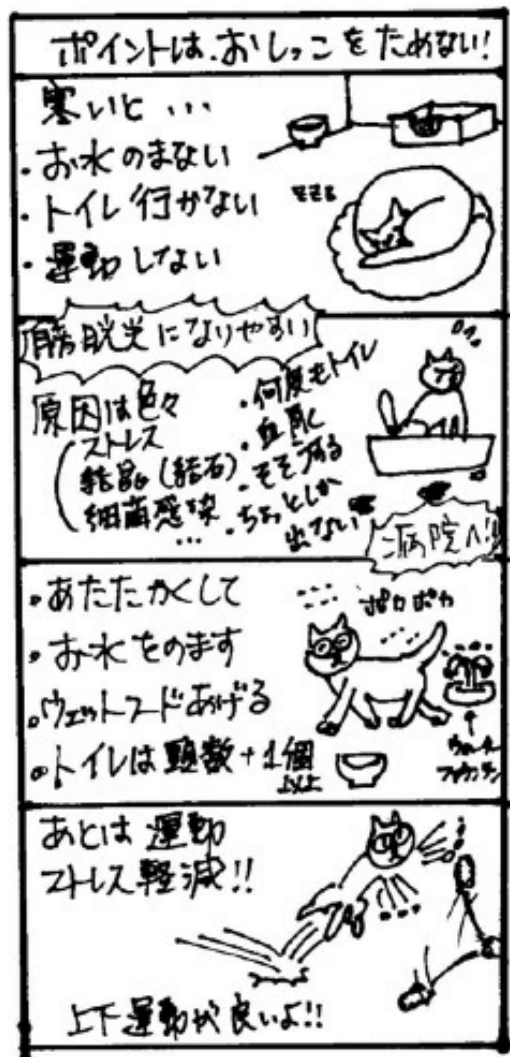 ポイントは、おしっこをためない!
寒いと…
・お水のまない
・トイレ行かない
・運動しない
膀胱炎になりやすい
原因は色々
ストレス
結晶(結石)
細菌感染
…
・何度もトイレ
・血尿
・そそうする
・ちょっとしか
出ない
病院へ!!
・あたたかくして
・お水をのます
・ウェットフードあげる
・トイレは頭数+1個
以上
ポカポカ
ウォーター
ファウンテン
あとは運動
ストレス軽減!!
上下運動が良いよ!!